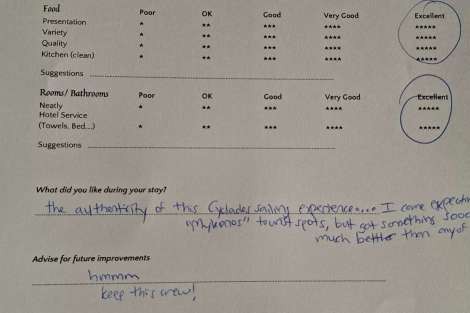 Food Poor OK Good Very Good Excellent
Presentation * ** *** **** *****
Variety * ** *** **** *****
Quality * ** *** **** *****
Kitchen (clean) * ** *** **** *****
Suggestions
Rooms/ Bathrooms Poor OK Good Very Good Excellent
Neatly * ** *** **** *****
Hotel Service
(Towels, Bed...) * ** *** **** *****
Suggestions
What did you like during your stay?
the authenticity of this Cyclades sailing experience.... I came expectin
"Mykonos" tourist spots, but got something sooo
much better than any of
Advise for future improvements
hmmm
keep this crew!